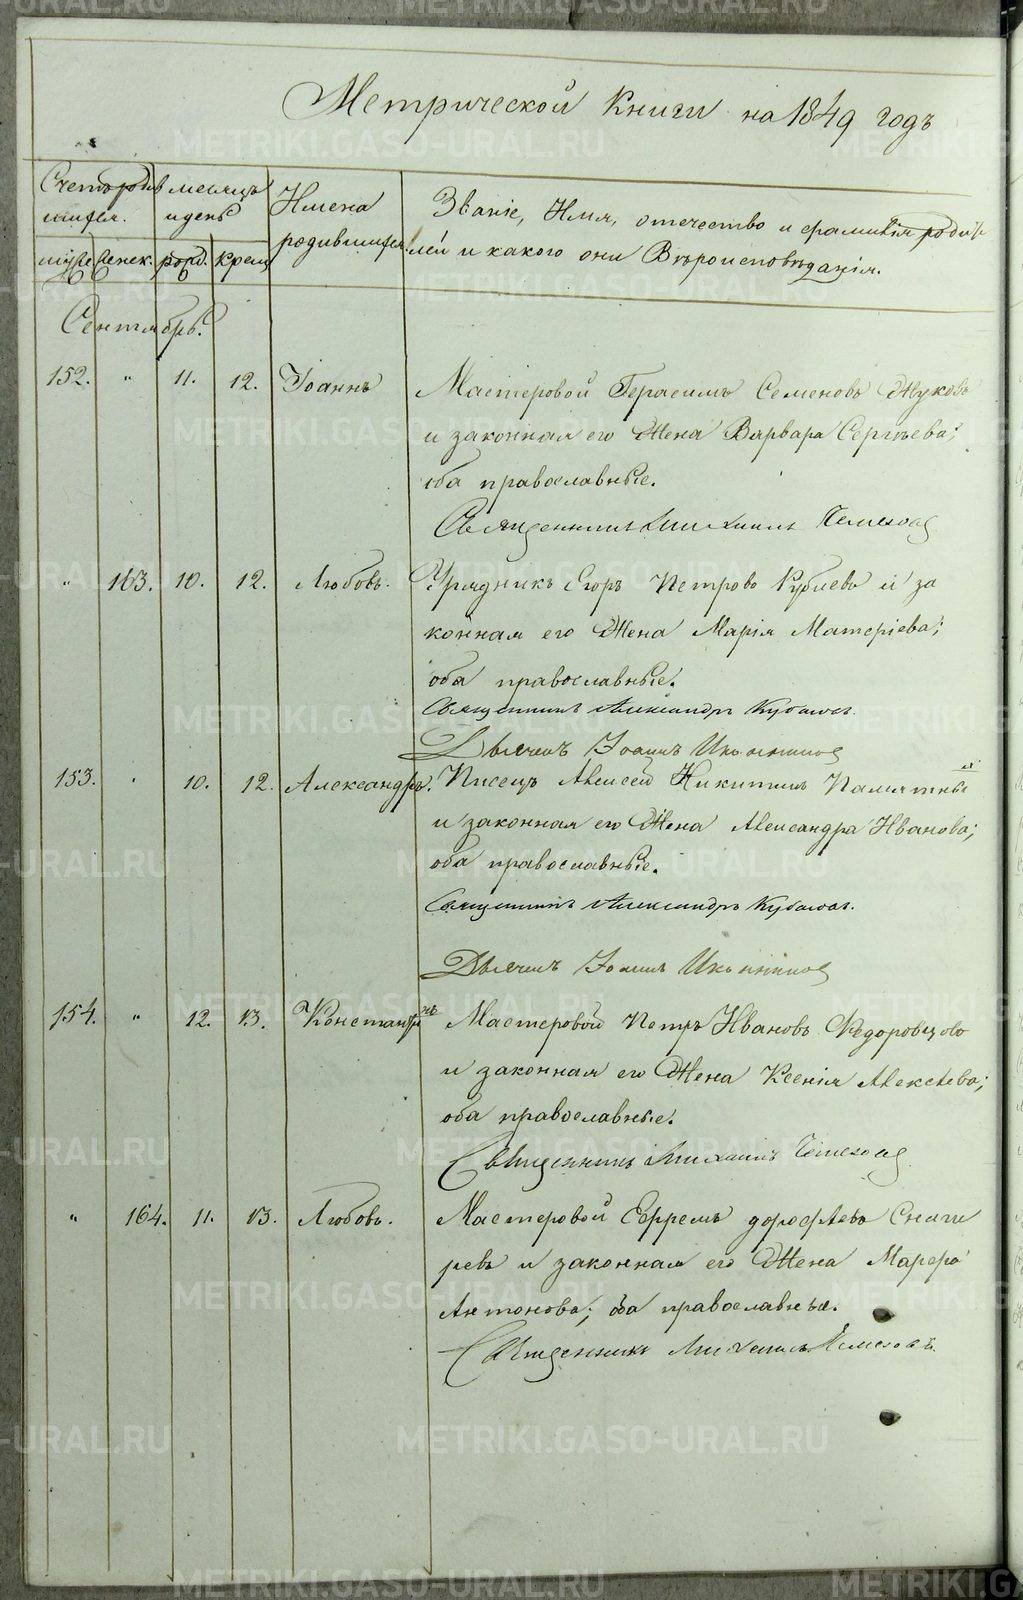 Метрической Книги на 1849 годъ
Счетъ родив месяцъ Имена Званіе, Имя, отечество и фамилія родит
шихся. и день родившихся. лей и какого они Вѣроисповѣданія.
мужс женск. рожд. крещ.
Сентябрь.
152. " 11. 12. Іоаннъ Мастеровой Герасимъ Семеновъ Жуковъ
и законная его Жена Варвара Сергѣева;
оба православные.
Священникъ Михаилъ
" 163. 10. 12. Любовь. Урядникъ Егоръ Петровъ и за
конная его Жена Марія Матеріева;
оба православные.
Священникъ Александръ
Дьячекъ Іоаннъ
153. " 10. 12. Александръ. Писецъ Алексей Никитинъ Памятный
и законная его Жена Александра Иванова;
оба православные.
Священникъ Александръ
Дьячекъ Іоаннъ
154. " 12. 13. Константинъ Мастеровой Петръ Ивановъ Федоровцовъ
и законная его Жена Ксенія Алексѣева;
оба православные.
Священникъ Михаилъ
" 164. 11. 13. Любовь. Мастеровой Ефремъ дорофѣевъ Снеги
ревъ и законная его Жена Марфа
Антонова; оба православные.
Священникъ Михаилъ
METRIKI.GASO-URAL.RU